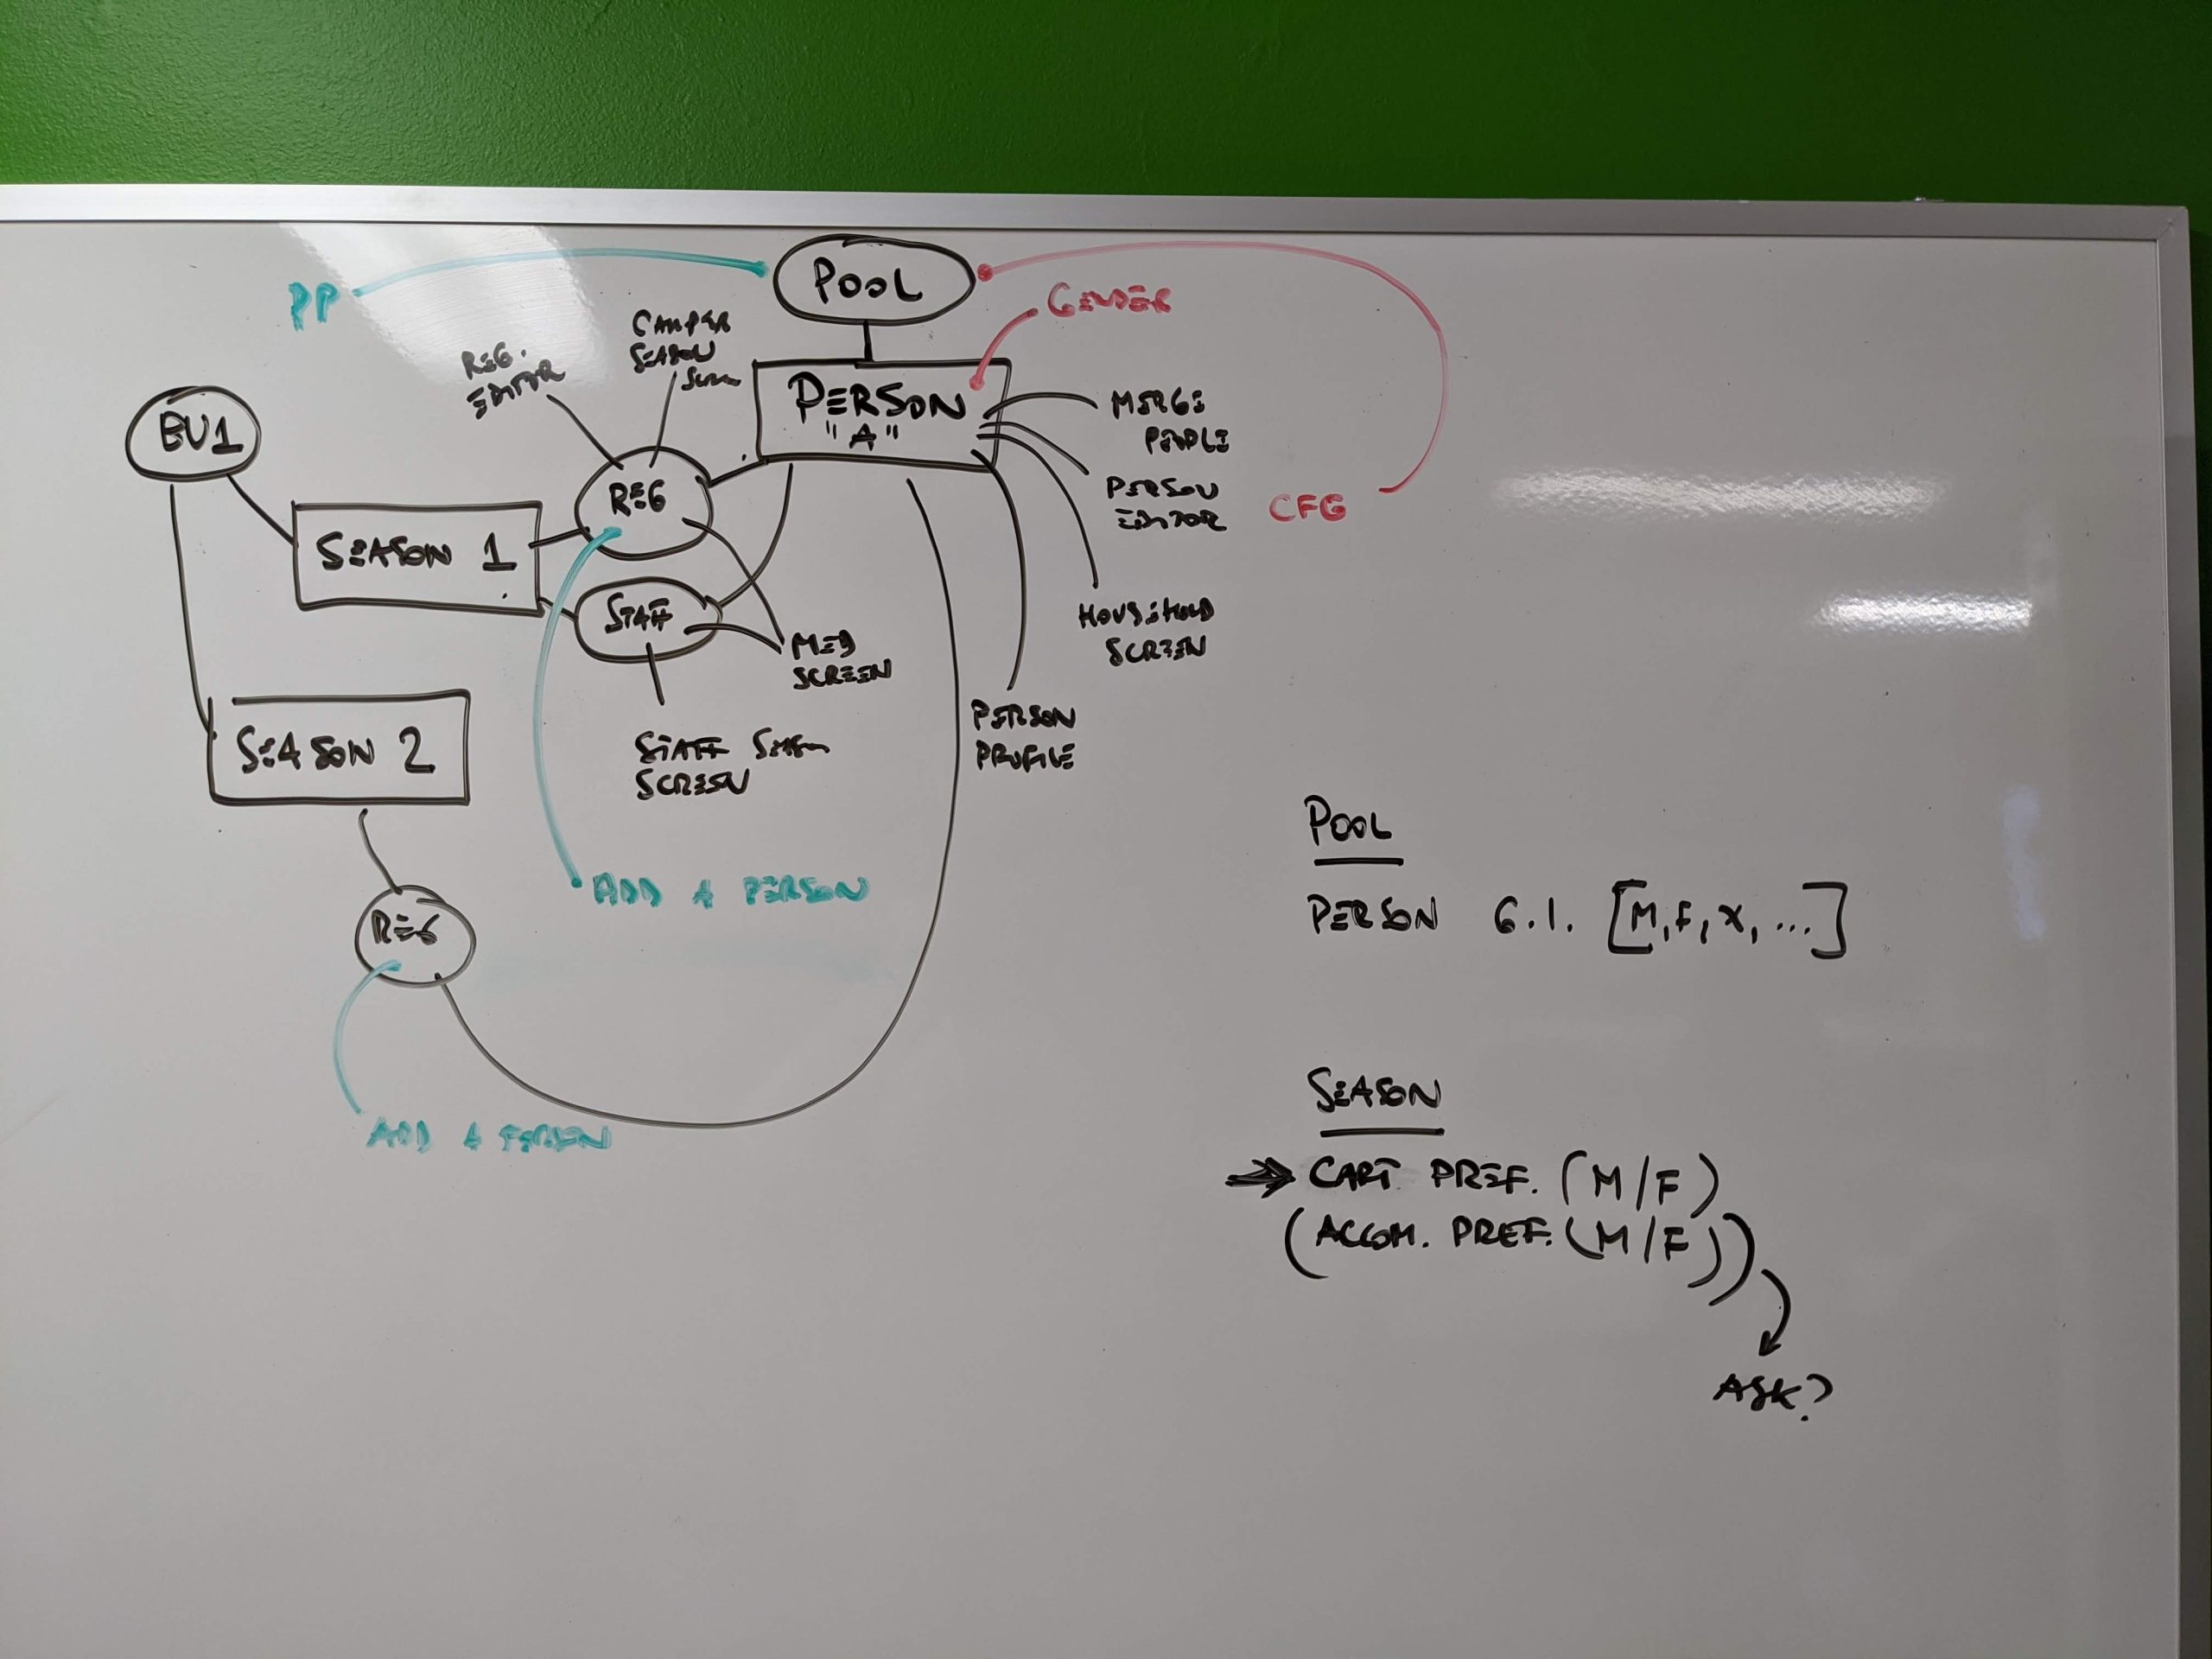 POOL
PP
GENDER
CAMPER
SEASON
SCRN
REG.
EDITOR
PERSON
"A"
MERGE
PEOPLE
BU1
REG
PERSON
EDITOR
CFG
SEASON 1
STAFF
HOUSEHOLD
SCREEN
MED
SCREEN
PERSON
PROFILE
SEASON 2
STAFF SEASON
SCREEN
ADD A PERSON
REG
ADD A PERSON
POOL
PERSON G.I. [M, F, X, ...]
SEASON
⇒ CART PREF. (M/F)
(ACCOM. PREF. (M/F))
ASK?